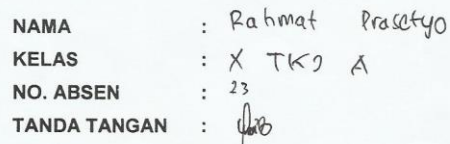 NAMA : Rahmat Prasetyo
KELAS : X TKJ A
NO. ABSEN : 23
TANDA TANGAN :